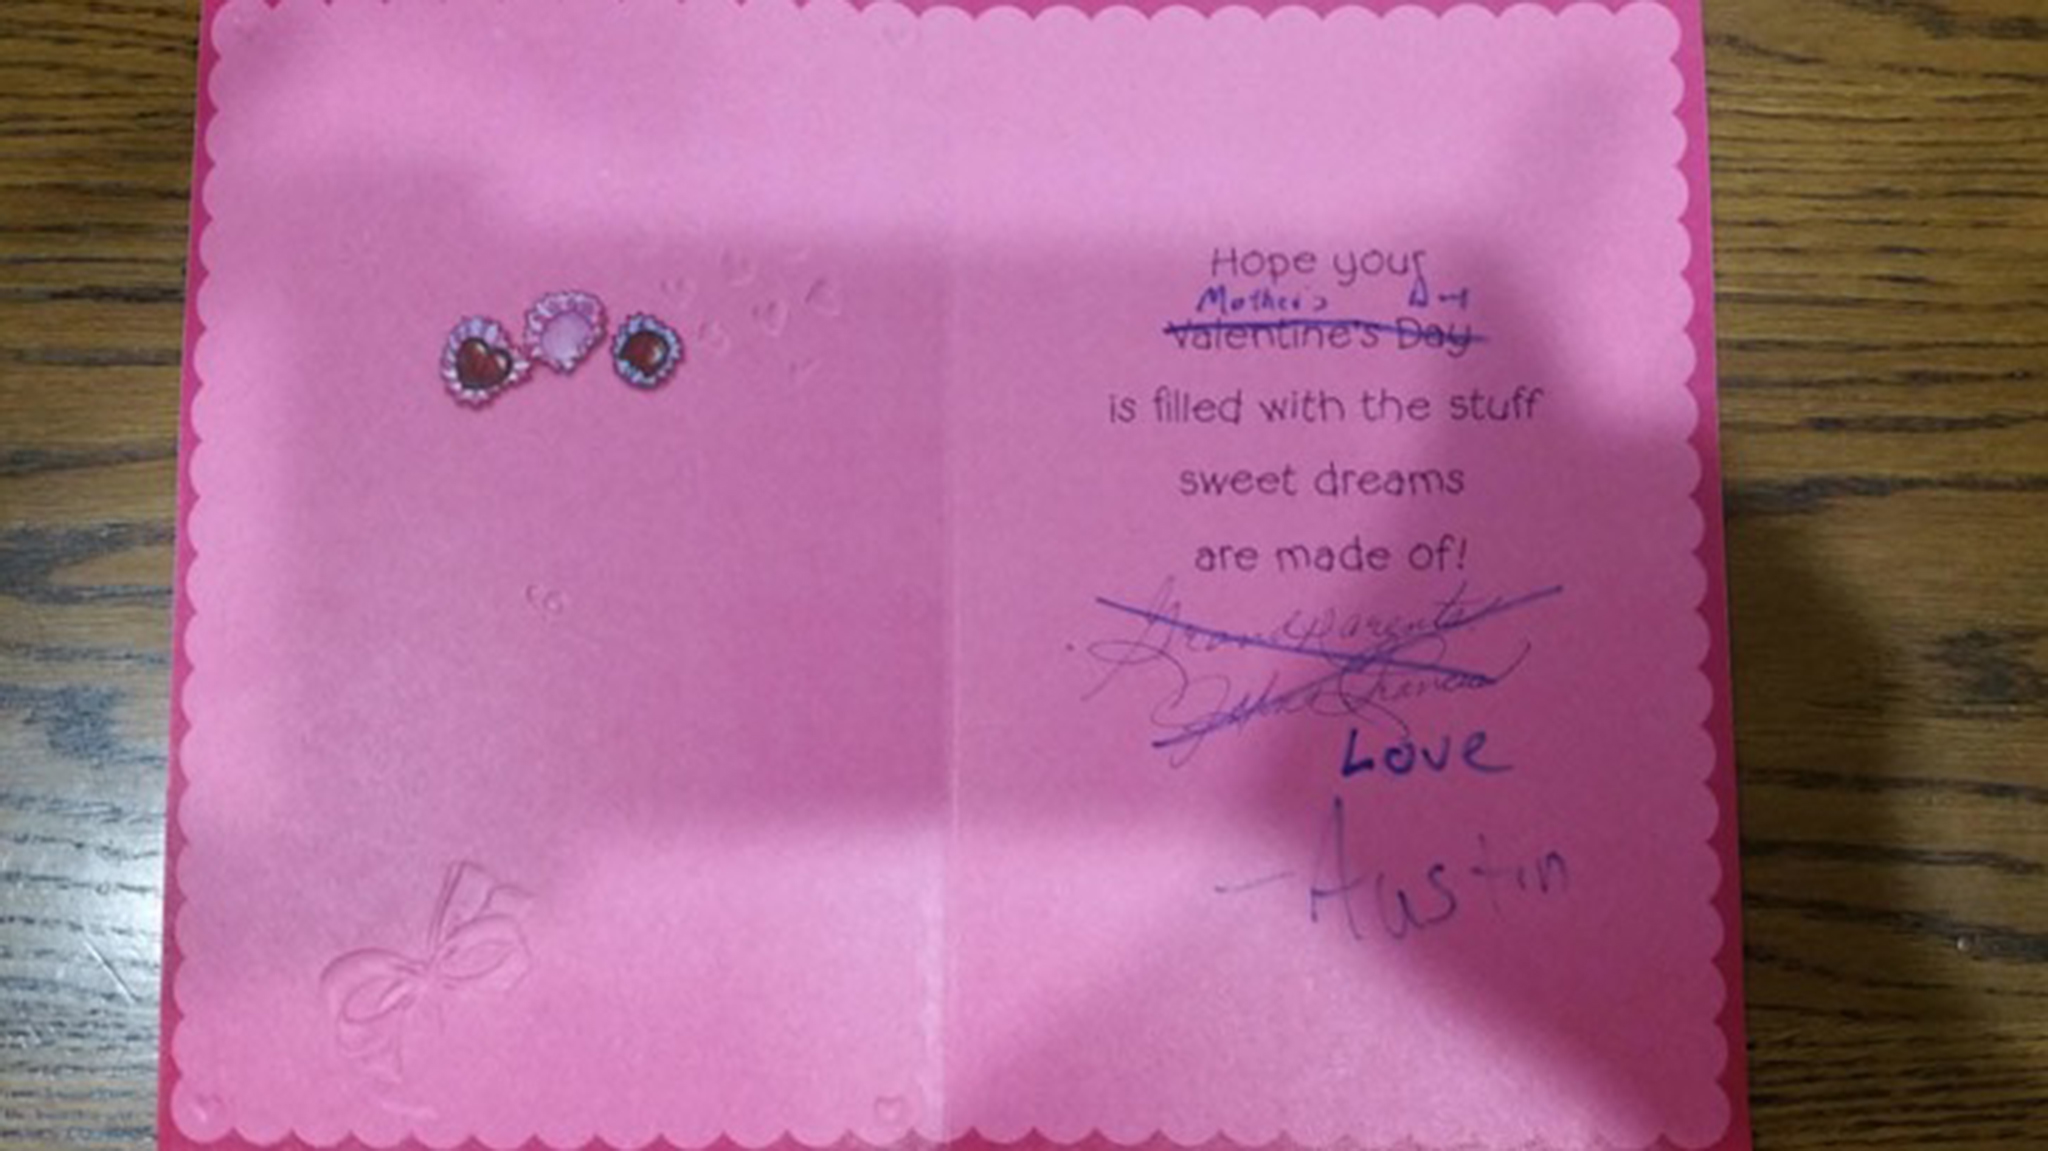 Hope your
Mother's Day
Valentine's Day
is filled with the stuff
sweet dreams
are made of!
Grandparents
Love
-Austin